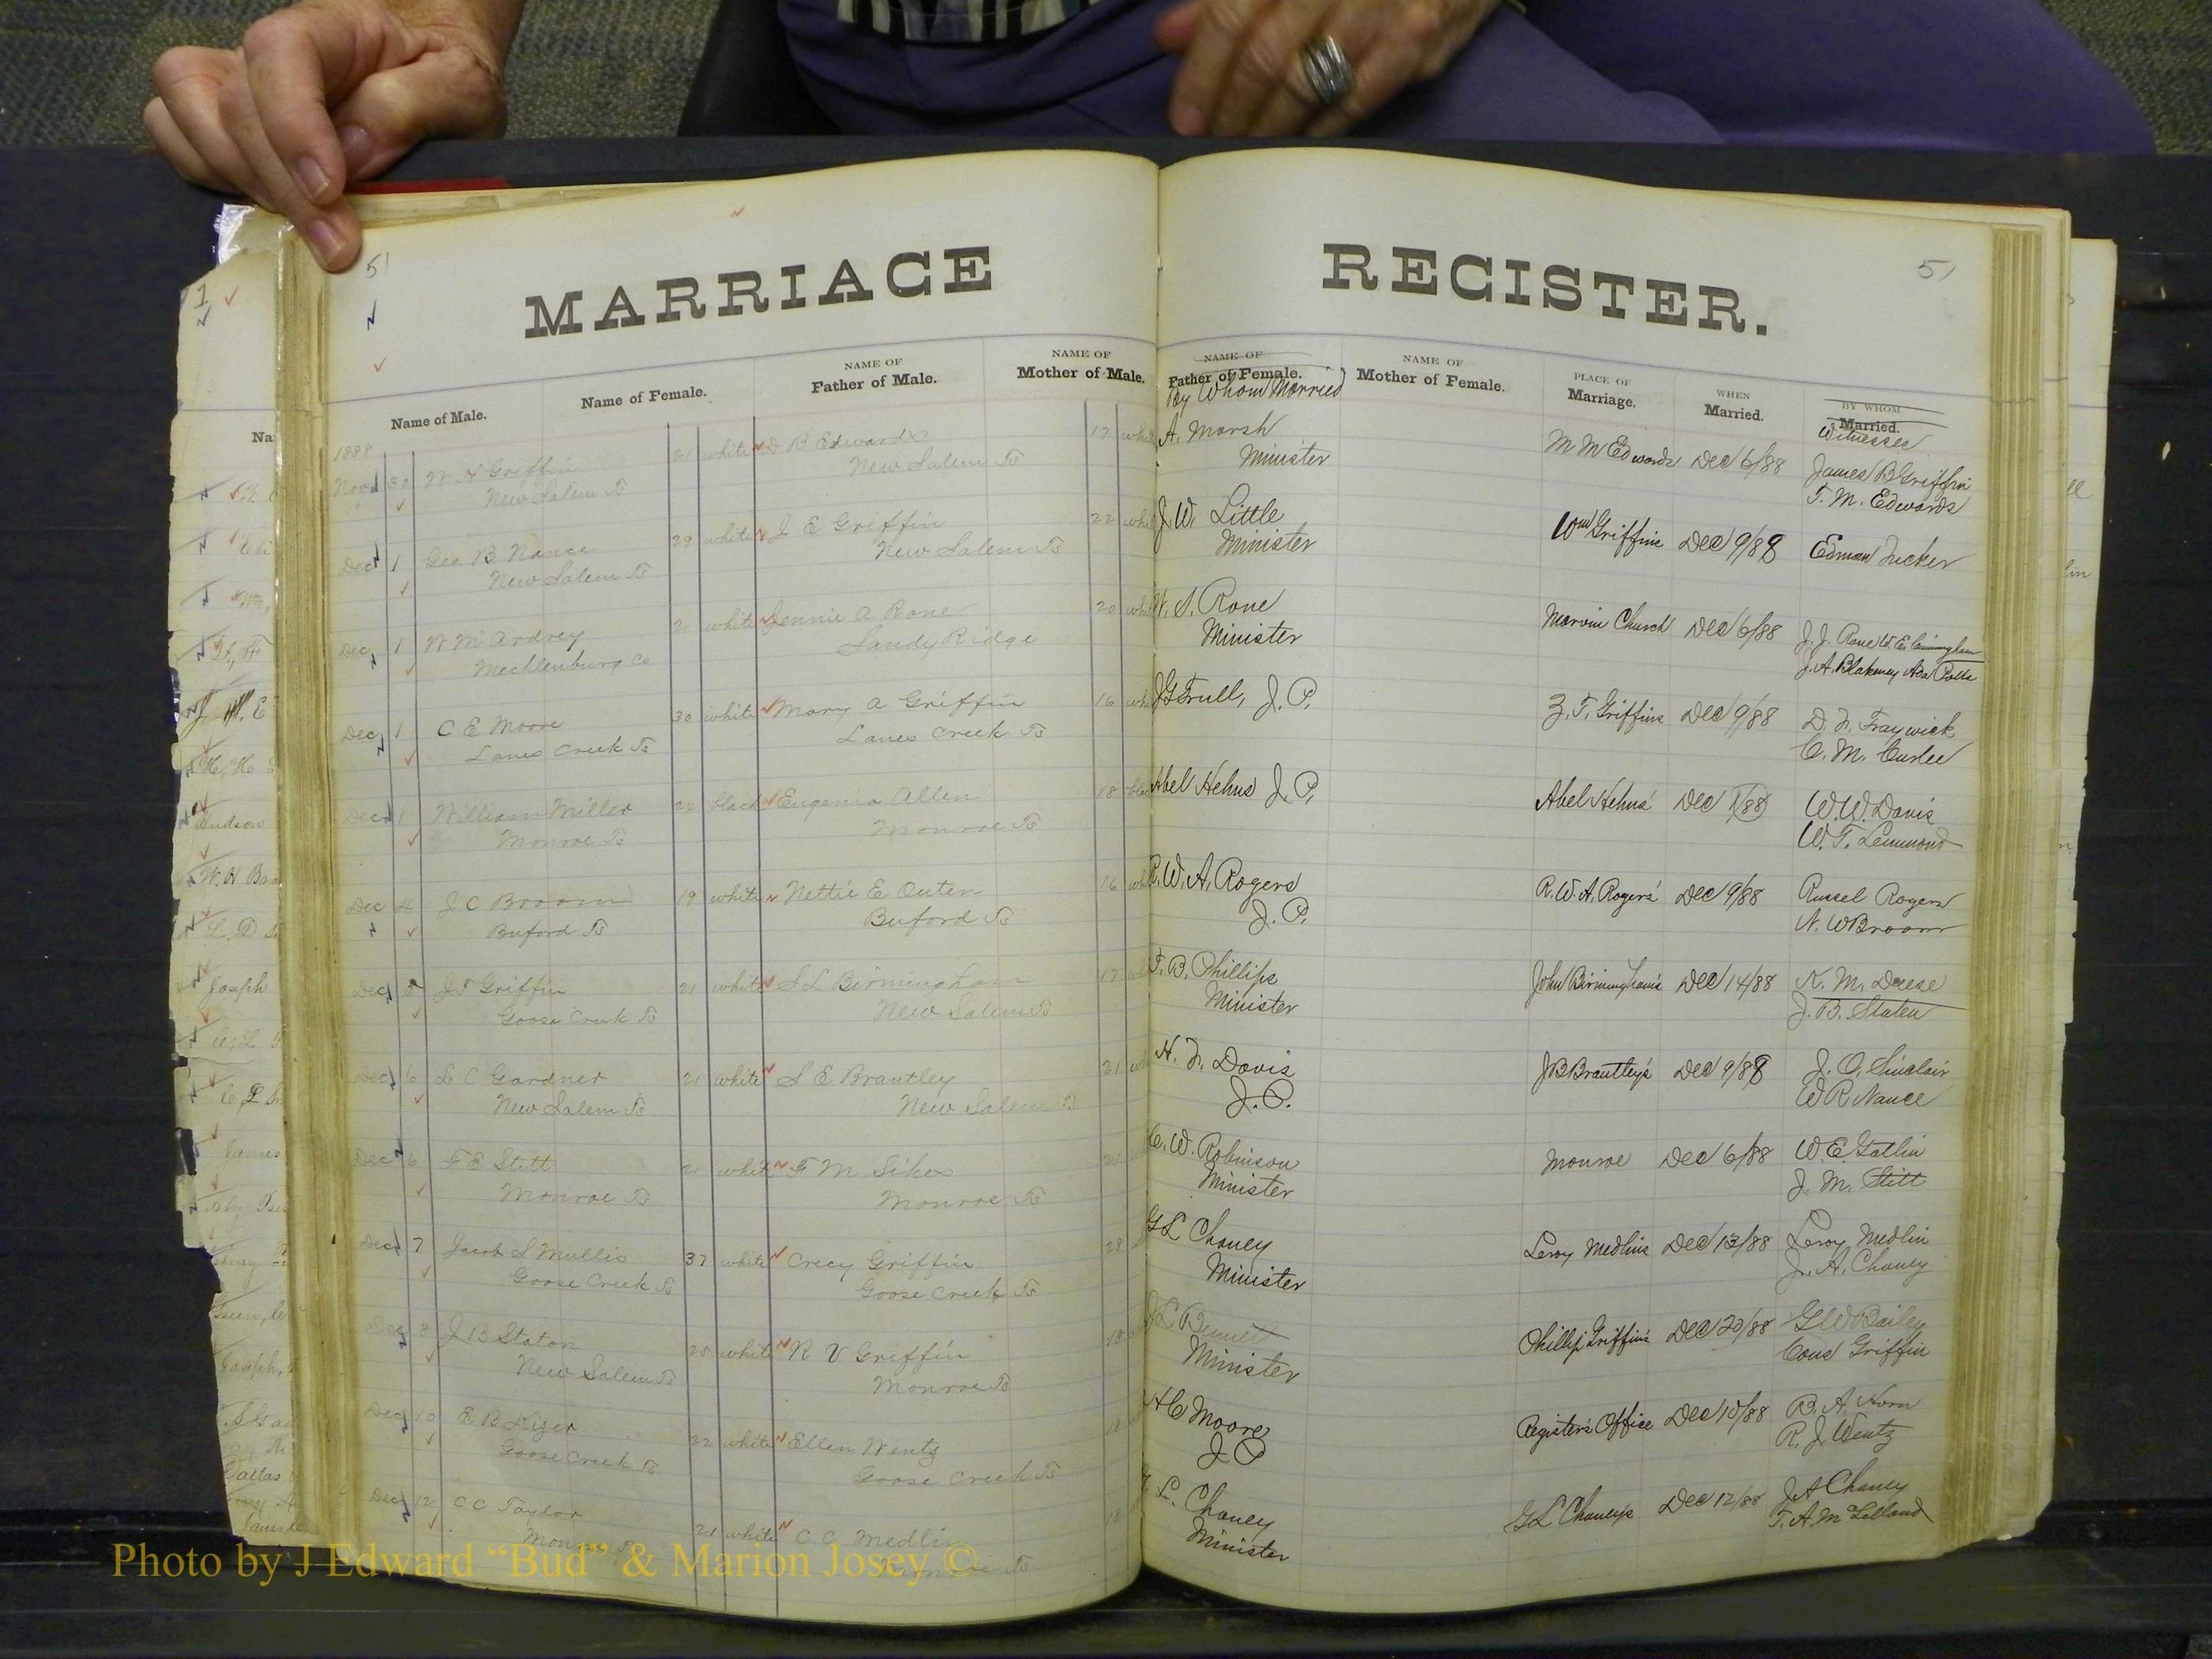 51
MARRIAGE REGISTER.
51
Name of Male.
Name of Female.
NAME OF
Father of Male.
NAME OF
Mother of Male.
NAME OF
Father of Female.
By Whom Married
NAME OF
Mother of Female.
PLACE OF
Marriage.
WHEN
Married.
BY WHOM
Married.
Witnesses
1888
Nov 30 W H Griffin 21 white D B Edwards 17 A. Marsh M M Edwards Dec 6/88 James B Griffin
New Salem Ts New Salem Ts Minister T. M. Edwards
Dec 1 Geo B. Nance 29 white J E Griffin 22 J. W. Little Wm Griffins Dec 9/88 Edman Tucker
New Salem Ts New Salem Ts Minister
Dec 1 W M Ardrey 21 white Jennie A Rone 20 W. S. Rone Marvin Church Dec 6/88 J. J. Rone W. E. Cunningham
Mecklenburg Co Sandy Ridge Minister J. A. Blakeney Ada Potts
Dec 1 C E Moore 30 white Mary A Griffin 16 J G Trull, J. P. Z. T. Griffins Dec 9/88 D. N. Traywick
Lanes Creek Ts Lanes Creek Ts C. M. Curlee
Dec 1 William Miller 24 black Eugenia Allen 18 Abel Helms J. P. Abel Helms' Dec 1/88 W. W. Davis
Monroe Ts Monroe Ts W. T. Lemmond
Dec 4 J C Broom 19 white Nettie E Outen 16 R. W. A. Rogers R. W. A. Rogers' Dec 9/88 Russel Rogers
Buford Ts Buford Ts J. P. N. W Broom
Dec J T Griffin 21 white S L Birmingham 17 T. B. Phillips John Birmingham's Dec 14/88 K. M. Deese
Goose Creek Ts New Salem Ts Minister J. B. Staten
Dec 6 L C Gardner 21 white S E Brantley 21 H. N. Davis J B Brantley's Dec 9/88 J. O. Sinclair
New Salem Ts New Salem Ts J. P. W R Nance
Dec 6 F E Stitt 21 white F M Sikes C. W. Robinson Monroe Dec 6/88 W. E. Gatlin
Monroe Ts Monroe Ts Minister J. M. Stitt
Dec 7 Jacob S Mullis 37 white Crecy Griffin 28 G L Chaney Leroy Medlins Dec 13/88 Leroy Medlin
Goose Creek Ts Goose Creek Ts Minister J. A. Chaney
Dec 8 J B Staton 25 white R V Griffin 18 J L Bennett Phillip Griffins Dec 20/88 G W Bailey
New Salem Ts Monroe Ts Minister Cons Griffin
Dec 10 E B Kizer 22 white Ellen Wentz 18 H C Moore Register's Office Dec 10/88 B. A. Horn
Goose Creek Ts Goose Creek Ts J P R. J. Wentz
Dec 12 C C Taylor 21 white C C Medlin 18 L. Chaney G L Chaney's Dec 12/88 J A Chaney
Monroe Ts Monroe Ts Minister T. A. McLelland
Photo by J Edward “Bud” & Marion Josey ©